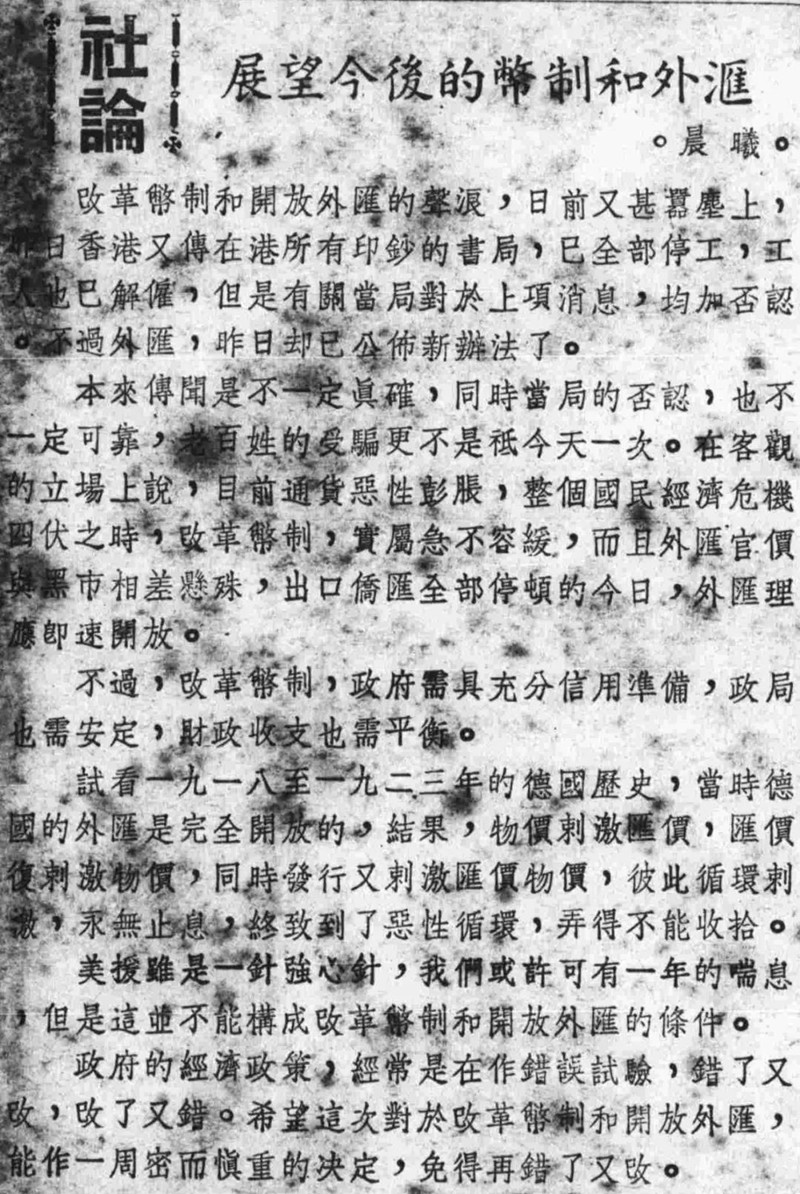 社論
展望今後的幣制和外滙
。晨曦。
改革幣制和開放外匯的聲浪，日前又甚囂塵上，
昨日香港又傳在港所有印鈔的書局，已全部停工，工
人也已解僱，但是有關當局對於上項消息，均加否認
。不過外匯，昨日却已公佈新辦法了。
本來傳聞是不一定眞確，同時當局的否認，也不
一定可靠，老百姓的受騙更不是祗今天一次。在客觀
的立場上說，目前通貨惡性彭脹，整個國民經濟危機
四伏之時，改革幣制，實屬急不容緩，而且外匯官價
與黑市相差懸殊，出口僑匯全部停頓的今日，外匯理
應卽速開放。
不過，改革幣制，政府需具充分信用準備，政局
也需安定，財政收支也需平衡。
試看一九一八至一九二三年的德國歷史，當時德
國的外匯是完全開放的，結果，物價刺激匯價，匯價
復刺激物價，同時發行又刺激匯價物價，彼此循環刺
激，永無止息，終致到了惡性循環，弄得不能收拾。
美援雖是一針強心針，我們或許可有一年的喘息
，但是這並不能構成改革幣制和開放外匯的條件。
政府的經濟政策，經常是在作錯誤試驗，錯了又
改，改了又錯。希望這次對於改革幣制和開放外匯，
能作一周密而愼重的决定，免得再錯了又改。